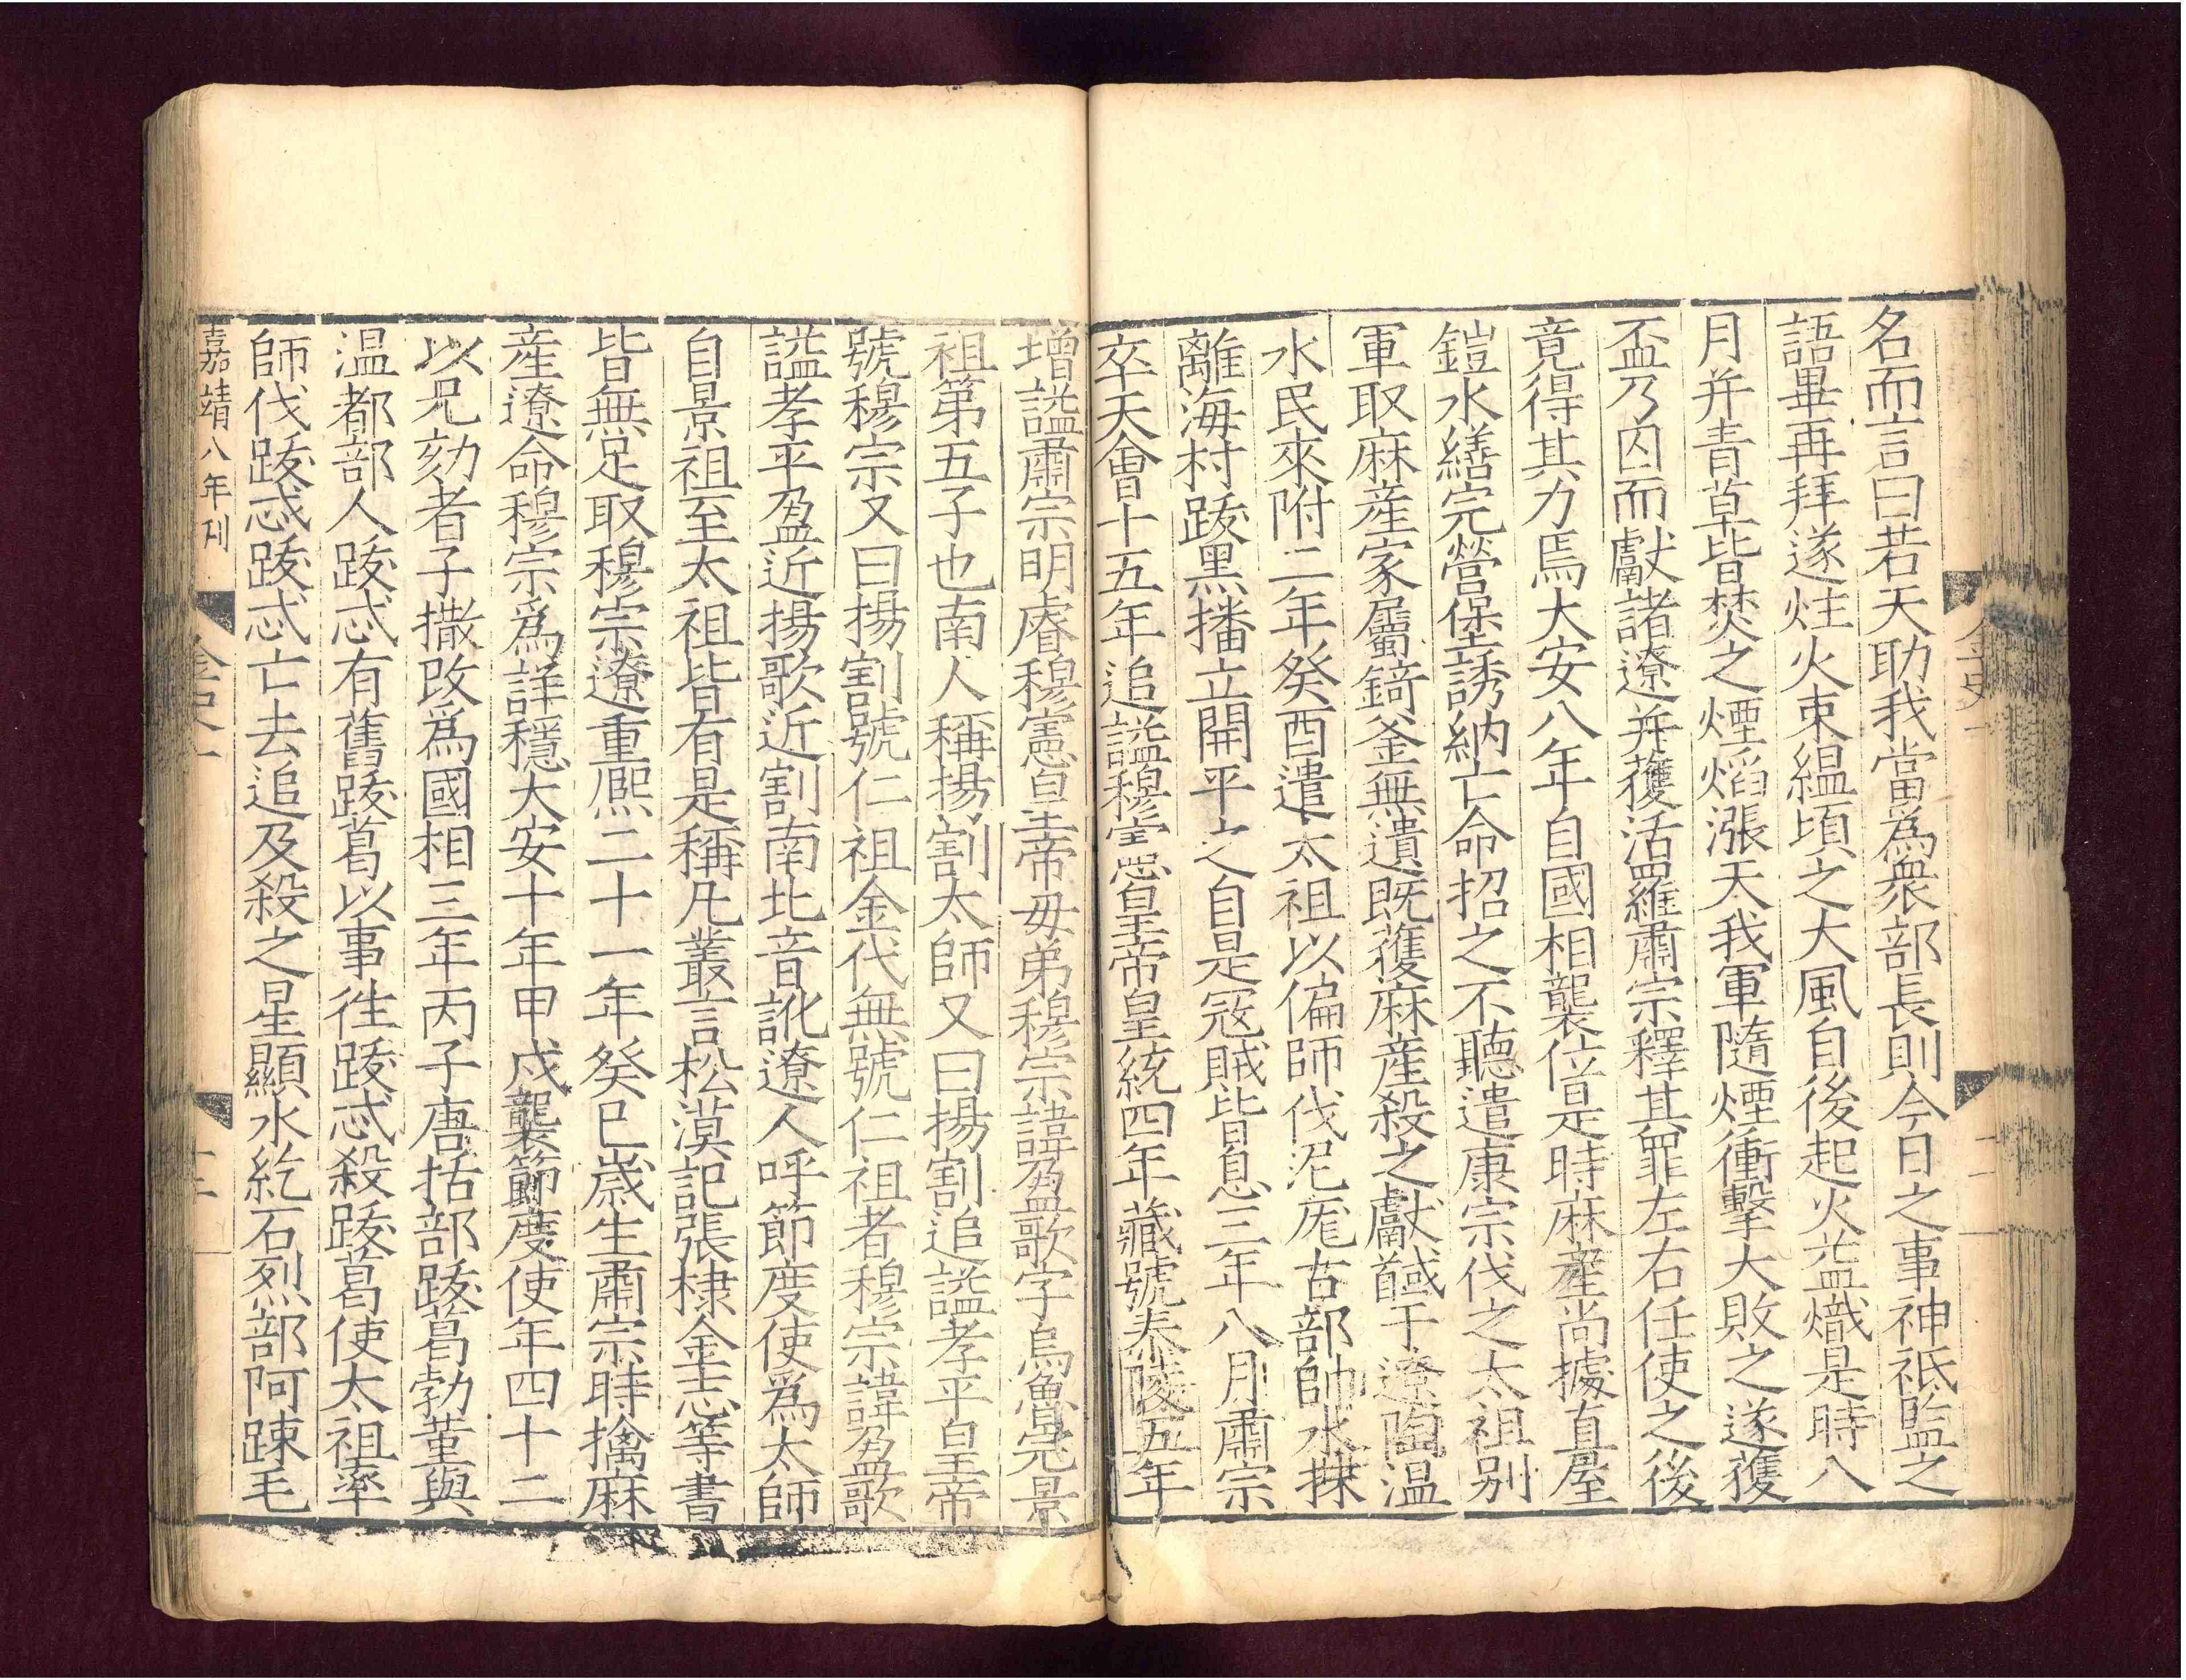 名而言曰若天助我當爲衆部長則今日之事神祗監之
語畢再拜遂炷火束縕頃之大風自後起火益熾是時八
月并青草皆焚之煙熖漲天我軍隨煙衝擊大敗之遂獲
盃乃囚而獻諸遼并獲活羅肅宗釋其罪左右任使之後
竟得其力焉大安八年自國相襲位是時麻產尚據直屋
鎧水繕完營堡誘納亡命招之不聽遣康宗伐之太祖别
軍取麻產家屬錡釜無遺既獲麻產殺之獻馘于遼陶温
水民來附二年癸酉遣太祖以偏師伐泥厖古部帥水抹
離海村跋黑播立開平之自是寇賊皆息三年八月肅宗
卒天會十五年追謚穆憲皇帝皇統四年藏號泰陵五年
增謚肅宗明睿穆憲皇帝毋弟穆宗諱盈歌字烏魯完景
祖第五子也南人稱揚割太師又曰揚割追謚孝平皇帝
號穆宗又曰揚割號仁祖金代無號仁祖者穆宗諱盈歌
謚孝平盈近揚歌近割南北音訛遼人呼節度使爲太師
自景祖至太祖皆有是稱凡叢言松漠記張棣金志等書
皆無足取穆宗遼重熈二十一年癸巳歲生肅宗時擒麻
產遼命穆宗爲詳穩大安十年甲戍襲節度使年四十二
以兄劾者子撒改爲國相三年丙子唐括部跋葛勃堇與
温都部人跋忒有舊跋葛以事徃跋忒殺跋葛使太祖率
師伐跋忒跋忒亡去追及殺之星顯水紇石烈部阿踈毛
嘉靖八年刊
金史一
十二